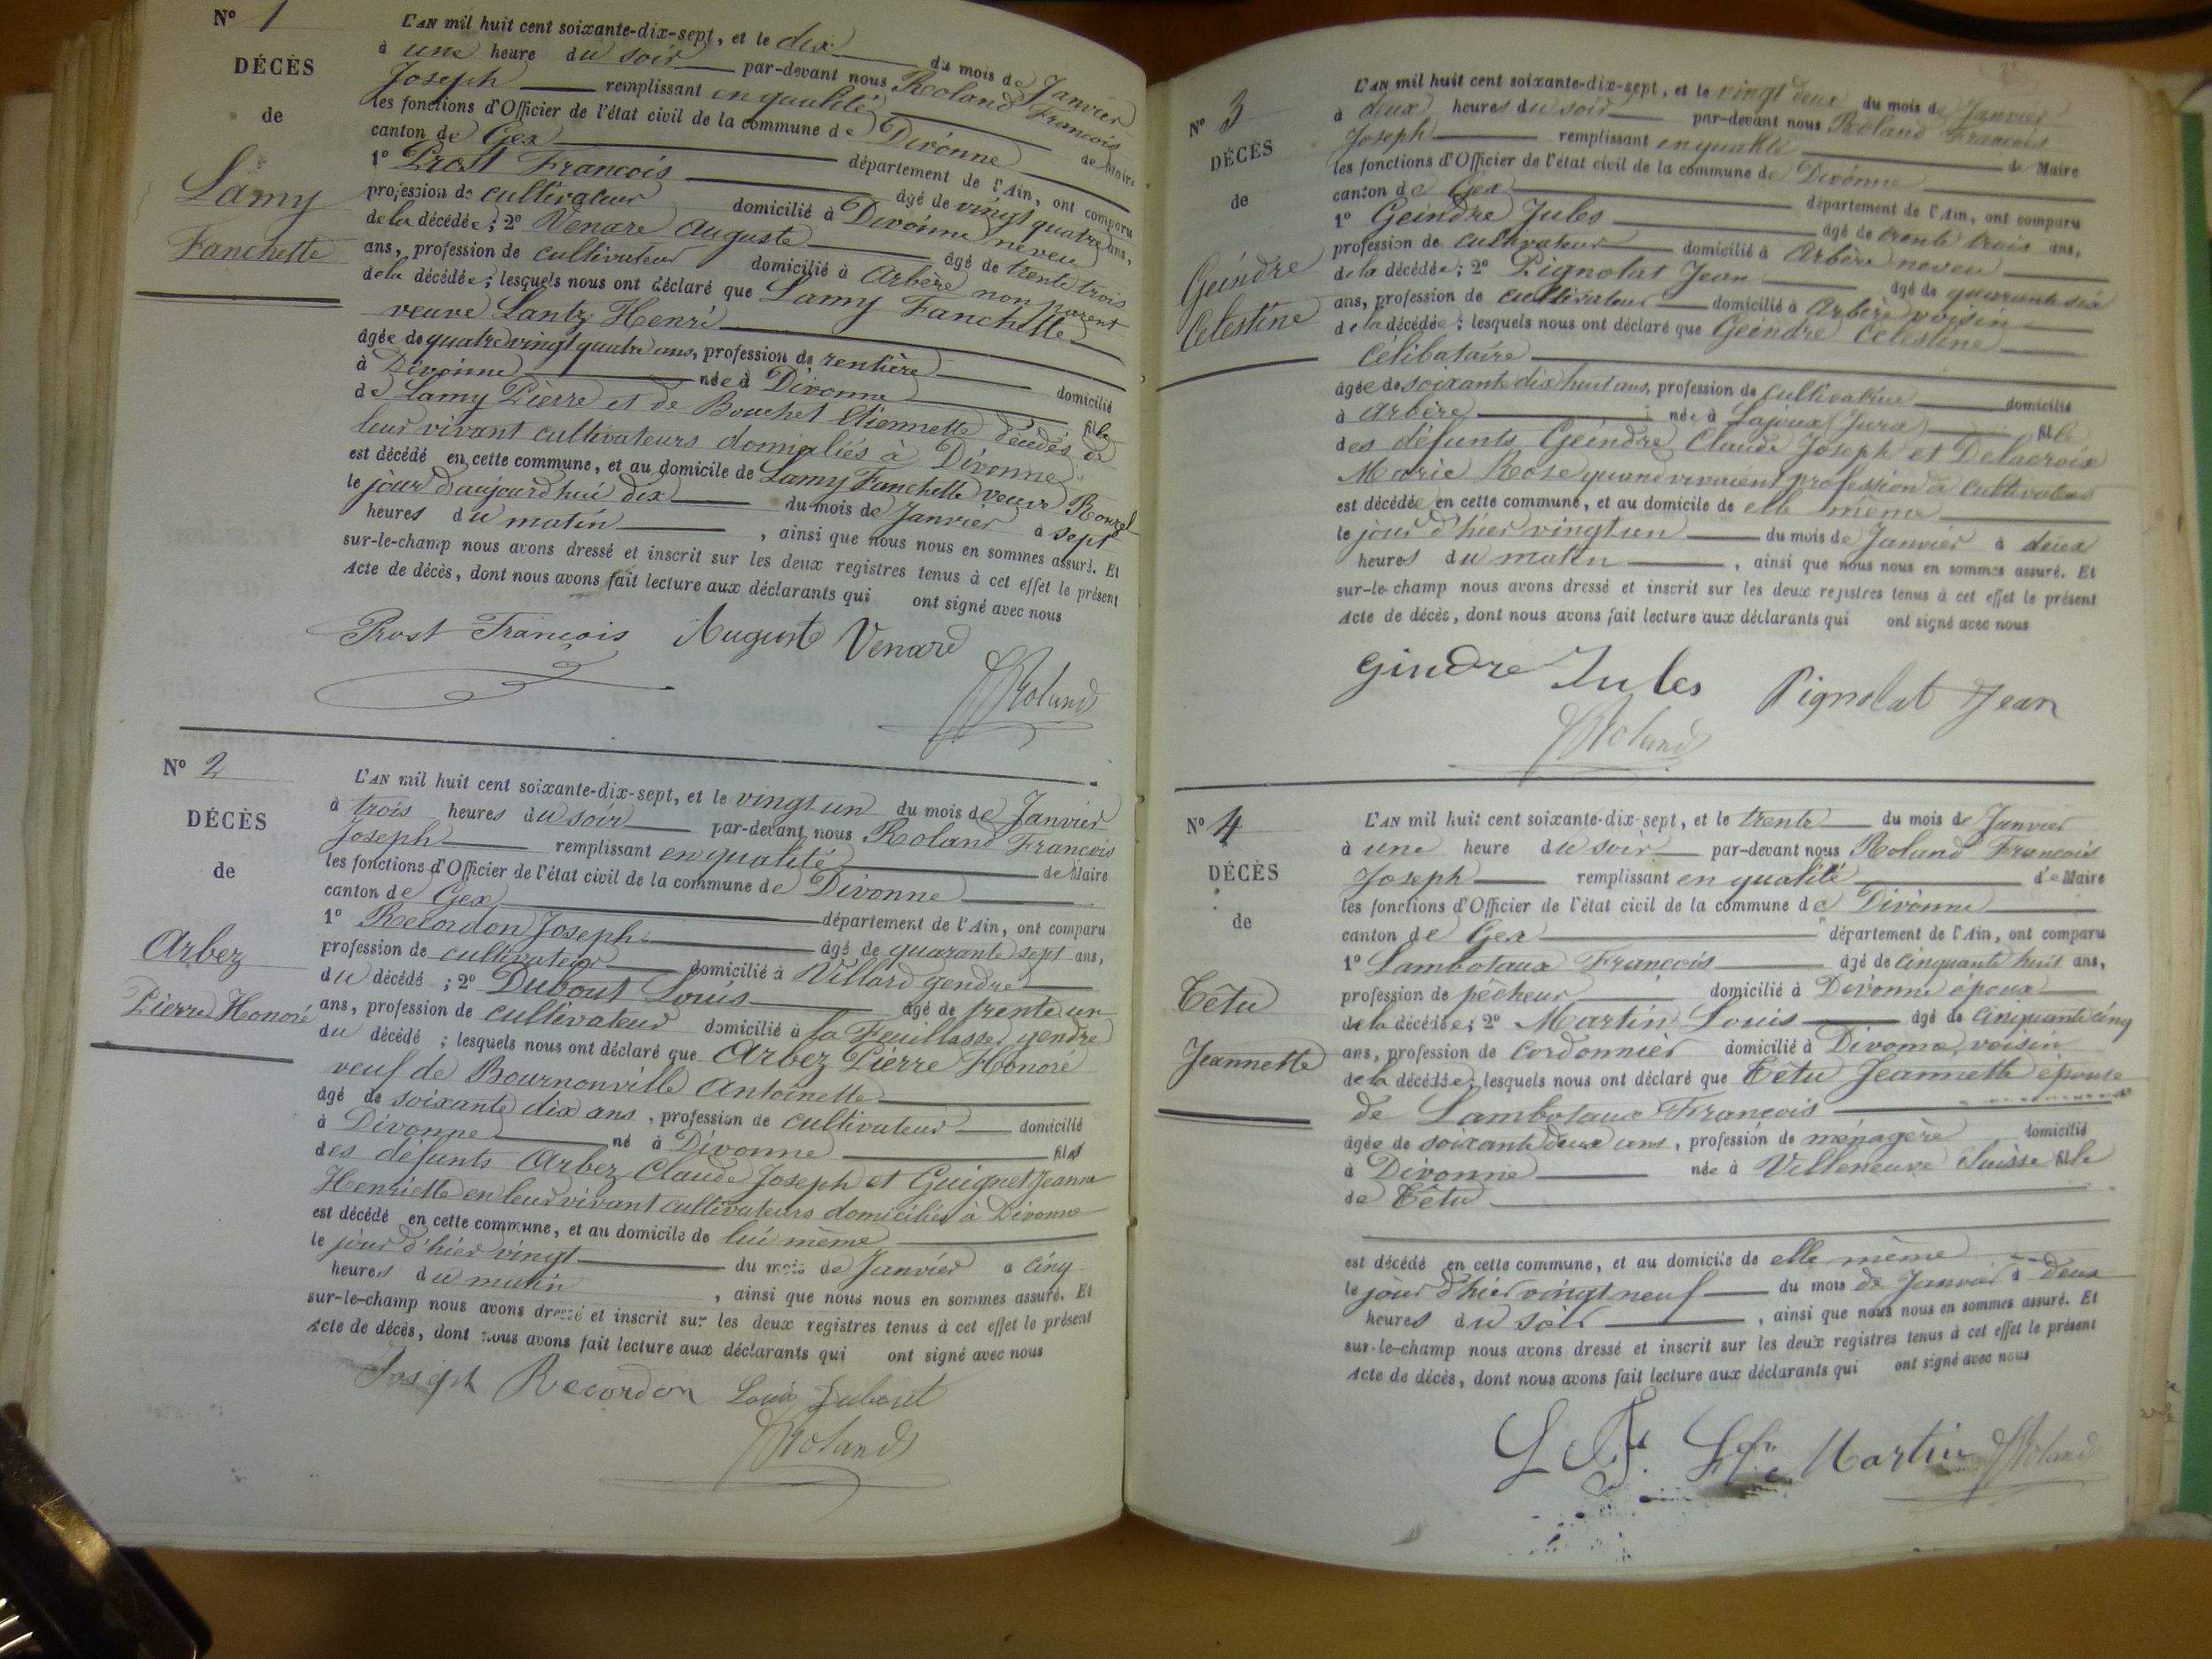 N° 1
DÉCÈS
de
Lamy
Fanchette
L'AN mil huit cent soixante-dix-sept, et le dix du mois de Janvier
à une heure du soir par-devant nous Roland François
Joseph remplissant en qualité de Maire
les fonctions d'Officier de l'état civil de la commune de Divonne
canton de Gex département de l'Ain, ont comparu
1° Prost François âgé de vingt quatre ans,
profession de cultivateur domicilié à Divonne neveu
de la décédée ; 2° Venare Auguste âgé de trente trois
ans, profession de cultivateur domicilié à Arbère non parent
de la décédée ; lesquels nous ont déclaré que Lamy Fanchette
veuve Lantz Henri
âgée de quatre vingt quatre ans, profession de rentière domicilié
à Divonne née à Divonne fille
de Lamy Pierre et de Bouchet Etiennette décédés de
leur vivant cultivateurs domiciliés à Divonne
est décédé en cette commune, et au domicile de Lamy Fanchette veuve
le jour d'aujourd'hui dix du mois de Janvier à sept
heures du matin , ainsi que nous nous en sommes assuré. Et
sur-le-champ nous avons dressé et inscrit sur les deux registres tenus à cet effet le présent
Acte de décès, dont nous avons fait lecture aux déclarants qui ont signé avec nous
Prost François Auguste Venare
Roland
N° 2
DÉCÈS
de
Arbez
Pierre Honoré
L'AN mil huit cent soixante-dix-sept, et le vingt un du mois de Janvier
à trois heures du soir par-devant nous Roland François
Joseph remplissant en qualité de Maire
les fonctions d'Officier de l'état civil de la commune de Divonne
canton de Gex département de l'Ain, ont comparu
1° Recordon Joseph âgé de quarante sept ans,
profession de cultivateur domicilié à Villard gendre
du décédé ; 2° Dubout Louis âgé de trente un
ans, profession de cultivateur domicilié à la Feuillasse gendre
du décédé ; lesquels nous ont déclaré que Arbez Pierre Honoré
veuf de Bournonville Antoinette
âgé de soixante dix ans , profession de cultivateur domicilié
à Divonne né à Divonne fils
des défunts Arbez Claude Joseph et Guignet Jeanne
Henriette en leur vivant cultivateurs domiciliés à Divonne
est décédé en cette commune, et au domicile de lui même
le jour d'hier vingt du mois de Janvier à cinq
heures du matin , ainsi que nous nous en sommes assuré. Et
sur-le-champ nous avons dressé et inscrit sur les deux registres tenus à cet effet le présent
Acte de décès, dont nous avons fait lecture aux déclarants qui ont signé avec nous
Joseph Recordon Louis Dubout
Roland
N° 3
DÉCÈS
de
Geindre
Célestine
L'AN mil huit cent soixante-dix-sept, et le vingt deux du mois de Janvier
à deux heures du soir par-devant nous Roland François
Joseph remplissant en qualité de Maire
les fonctions d'Officier de l'état civil de la commune de Divonne
canton de Gex département de l'Ain, ont comparu
1° Geindre Jules âgé de trente trois ans,
profession de cultivateur domicilié à Arbère neveu
de la décédée ; 2° Pignolat Jean âgé de quarante six
ans, profession de cultivateur domicilié à Arbère voisin
de la décédée ; lesquels nous ont déclaré que Geindre Célestine
célibataire
âgée de soixante dix huit ans, profession de cultivatrice domicilié
à Arbère née à Lajoux (Jura) fille
des défunts Geindre Claude Joseph et Delacroix
Marie Rose quand vivaient profession de cultivateurs
est décédée en cette commune, et au domicile de elle même
le jour d'hier vingt un du mois de Janvier à deux
heures du matin , ainsi que nous nous en sommes assuré. Et
sur-le-champ nous avons dressé et inscrit sur les deux registres tenus à cet effet le présent
Acte de décès, dont nous avons fait lecture aux déclarants qui ont signé avec nous
Gindre Jules Pignolat Jean
Roland
N° 4
DÉCÈS
de
Têtu
Jeannette
L'AN mil huit cent soixante-dix-sept, et le trente du mois de Janvier
à une heure du soir par-devant nous Roland François
Joseph remplissant en qualité de Maire
les fonctions d'Officier de l'état civil de la commune de Divonne
canton de Gex département de l'Ain, ont comparu
1° Lambotaux François âgé de cinquante huit ans,
profession de pêcheur domicilié à Divonne époux
de la décédée ; 2° Martin Louis âgé de cinquante cinq
ans, profession de cordonnier domicilié à Divonne, voisin
de la décédée ; lesquels nous ont déclaré que Têtu Jeannette épouse
de Lambotaux François
âgée de soixante deux ans , profession de ménagère domicilié
à Divonne née à Villeneuve Suisse fille
de Têtu
est décédé en cette commune, et au domicile de elle même
le jour d'hier vingt neuf du mois de Janvier à deux
heures du soir , ainsi que nous nous en sommes assuré. Et
sur-le-champ nous avons dressé et inscrit sur les deux registres tenus à cet effet le présent
Acte de décès, dont nous avons fait lecture aux déclarants qui ont signé avec nous
L F. Martin Roland